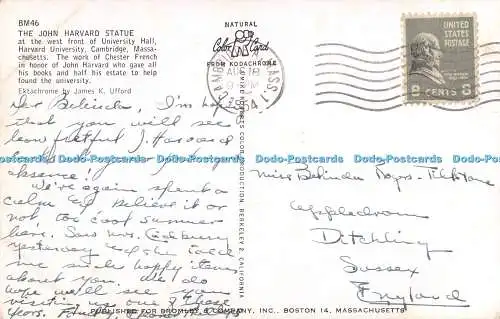 BM46
THE JOHN HARVARD STATUE
at the west front of University Hall,
Harvard University, Cambridge, Massa-
chusetts. The work of Chester French
in honor of John Harvard who gave all
his books and half his estate to help
found the university.
Ektachrome by James K. Ufford
NATURAL
Color Card
FROM KODACHROME
CAMBRIDGE MASS. 1
AUG 18
PM
UNITED STATES
POSTAGE
8 CENTS 8
Dear Belinda, I'm hoping
that you will see
how faithful J. Harvard
absence!
We're again spent a
calm and believe it or
not too cool summer
here. Saw Mrs.
yesterday and she told
me such happy items
about you. We do
hope we'll see you
visiting us one of these
years.
MIKE ROBERTS COLOR PRODUCTION, BERKELEY 2, CALIFORNIA
Miss Belinda
Appledram
Ditchling
Sussex
England
PUBLISHED FOR BROMLEY & COMPANY, INC., BOSTON 14, MASSACHUSETTS
Dodo-Postcards Dodo-Postcards Dodo-Postcards Dodo-Postcards Dodo-Postcards Dodo-Postcards